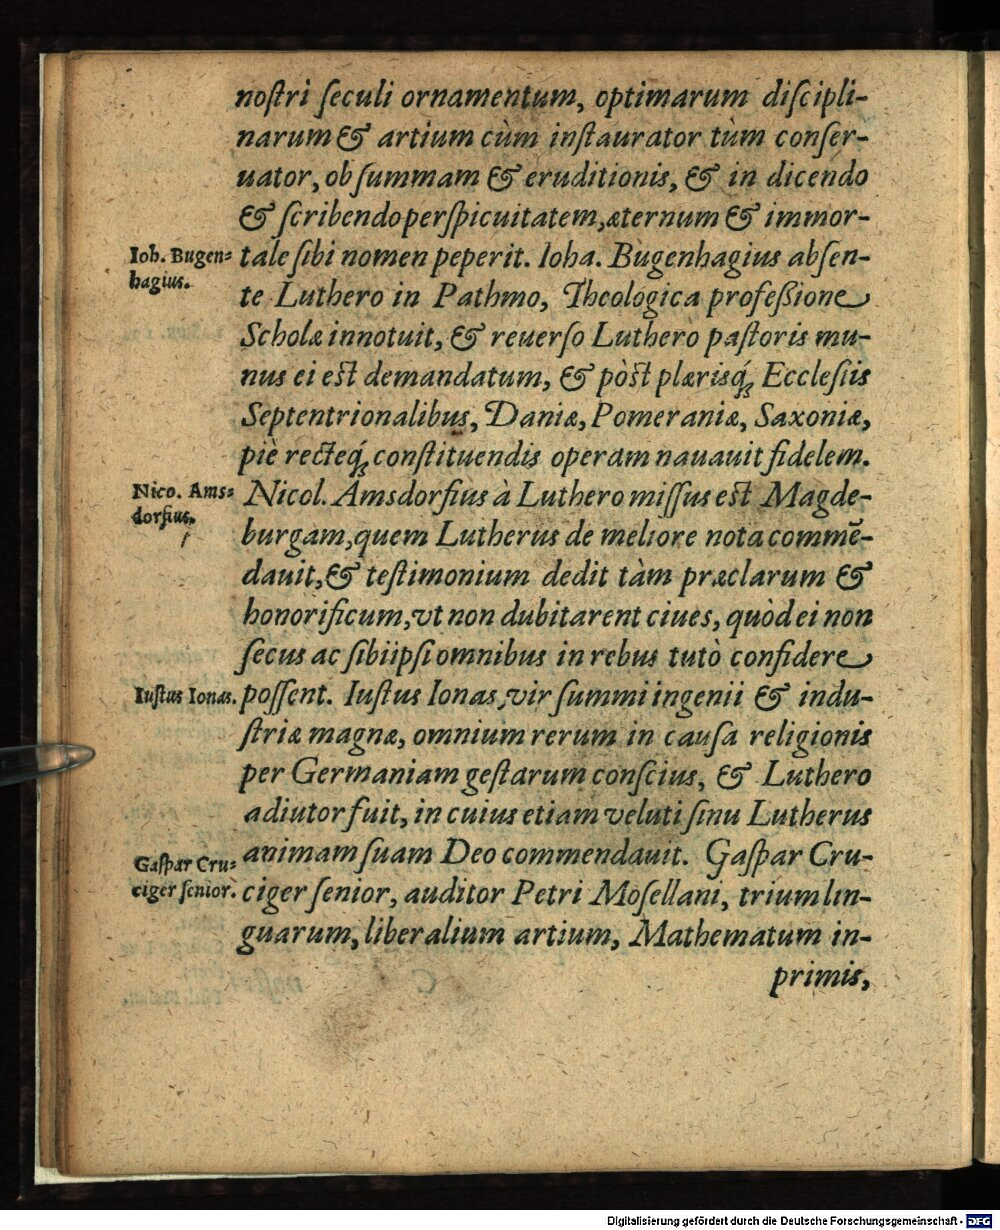 noſtri ſeculi ornamentum, optimarum diſcipli-
narum & artium cùm inſtaurator tùm conſer-
uator, ob ſummam & eruditionis, & in dicendo
& ſcribendo perſpicuitatem, æternum & immor-
Ioh. Bugen=
hagius.
tale ſibi nomen peperit. Ioha. Bugenhagius abſen-
te Luthero in Pathmo, Theologica profeßione
Scholæ innotuit, & reuerſo Luthero paſtoris mu-
nus ei est demandatum, & pòst plærisq́; Eccleſiis
Septentrionalibus, Daniæ, Pomeraniæ, Saxoniæ,
piè recteq́; conſtituendis operam nauauit fidelem.
Nico. Ams=
dorfius.
Nicol. Amsdorfius à Luthero miſſus est Magde-
burgam, quem Lutherus de meliore nota commē-
dauit, & teſtimonium dedit tàm præclarum &
honorificum, vt non dubitarent ciues, quòd ei non
ſecus ac ſibiipſi omnibus in rebus tutò confidere
Iuſtus Ionas.
poſſent. Iuſtus Ionas, vir ſummi ingenii & indu-
ſtriæ magnæ, omnium rerum in cauſa religionis
per Germaniam geſtarum conſcius, & Luthero
adiutor fuit, in cuius etiam veluti ſinu Lutherus
Gaſpar Cru=
ciger ſenior.
animam ſuam Deo commendauit. Gaſpar Cru-
ciger ſenior, auditor Petri Moſellani, trium lin-
guarum, liberalium artium, Mathematum in-
primis,
Digitalisierung gefördert durch die Deutsche Forschungsgemeinschaft - DFG